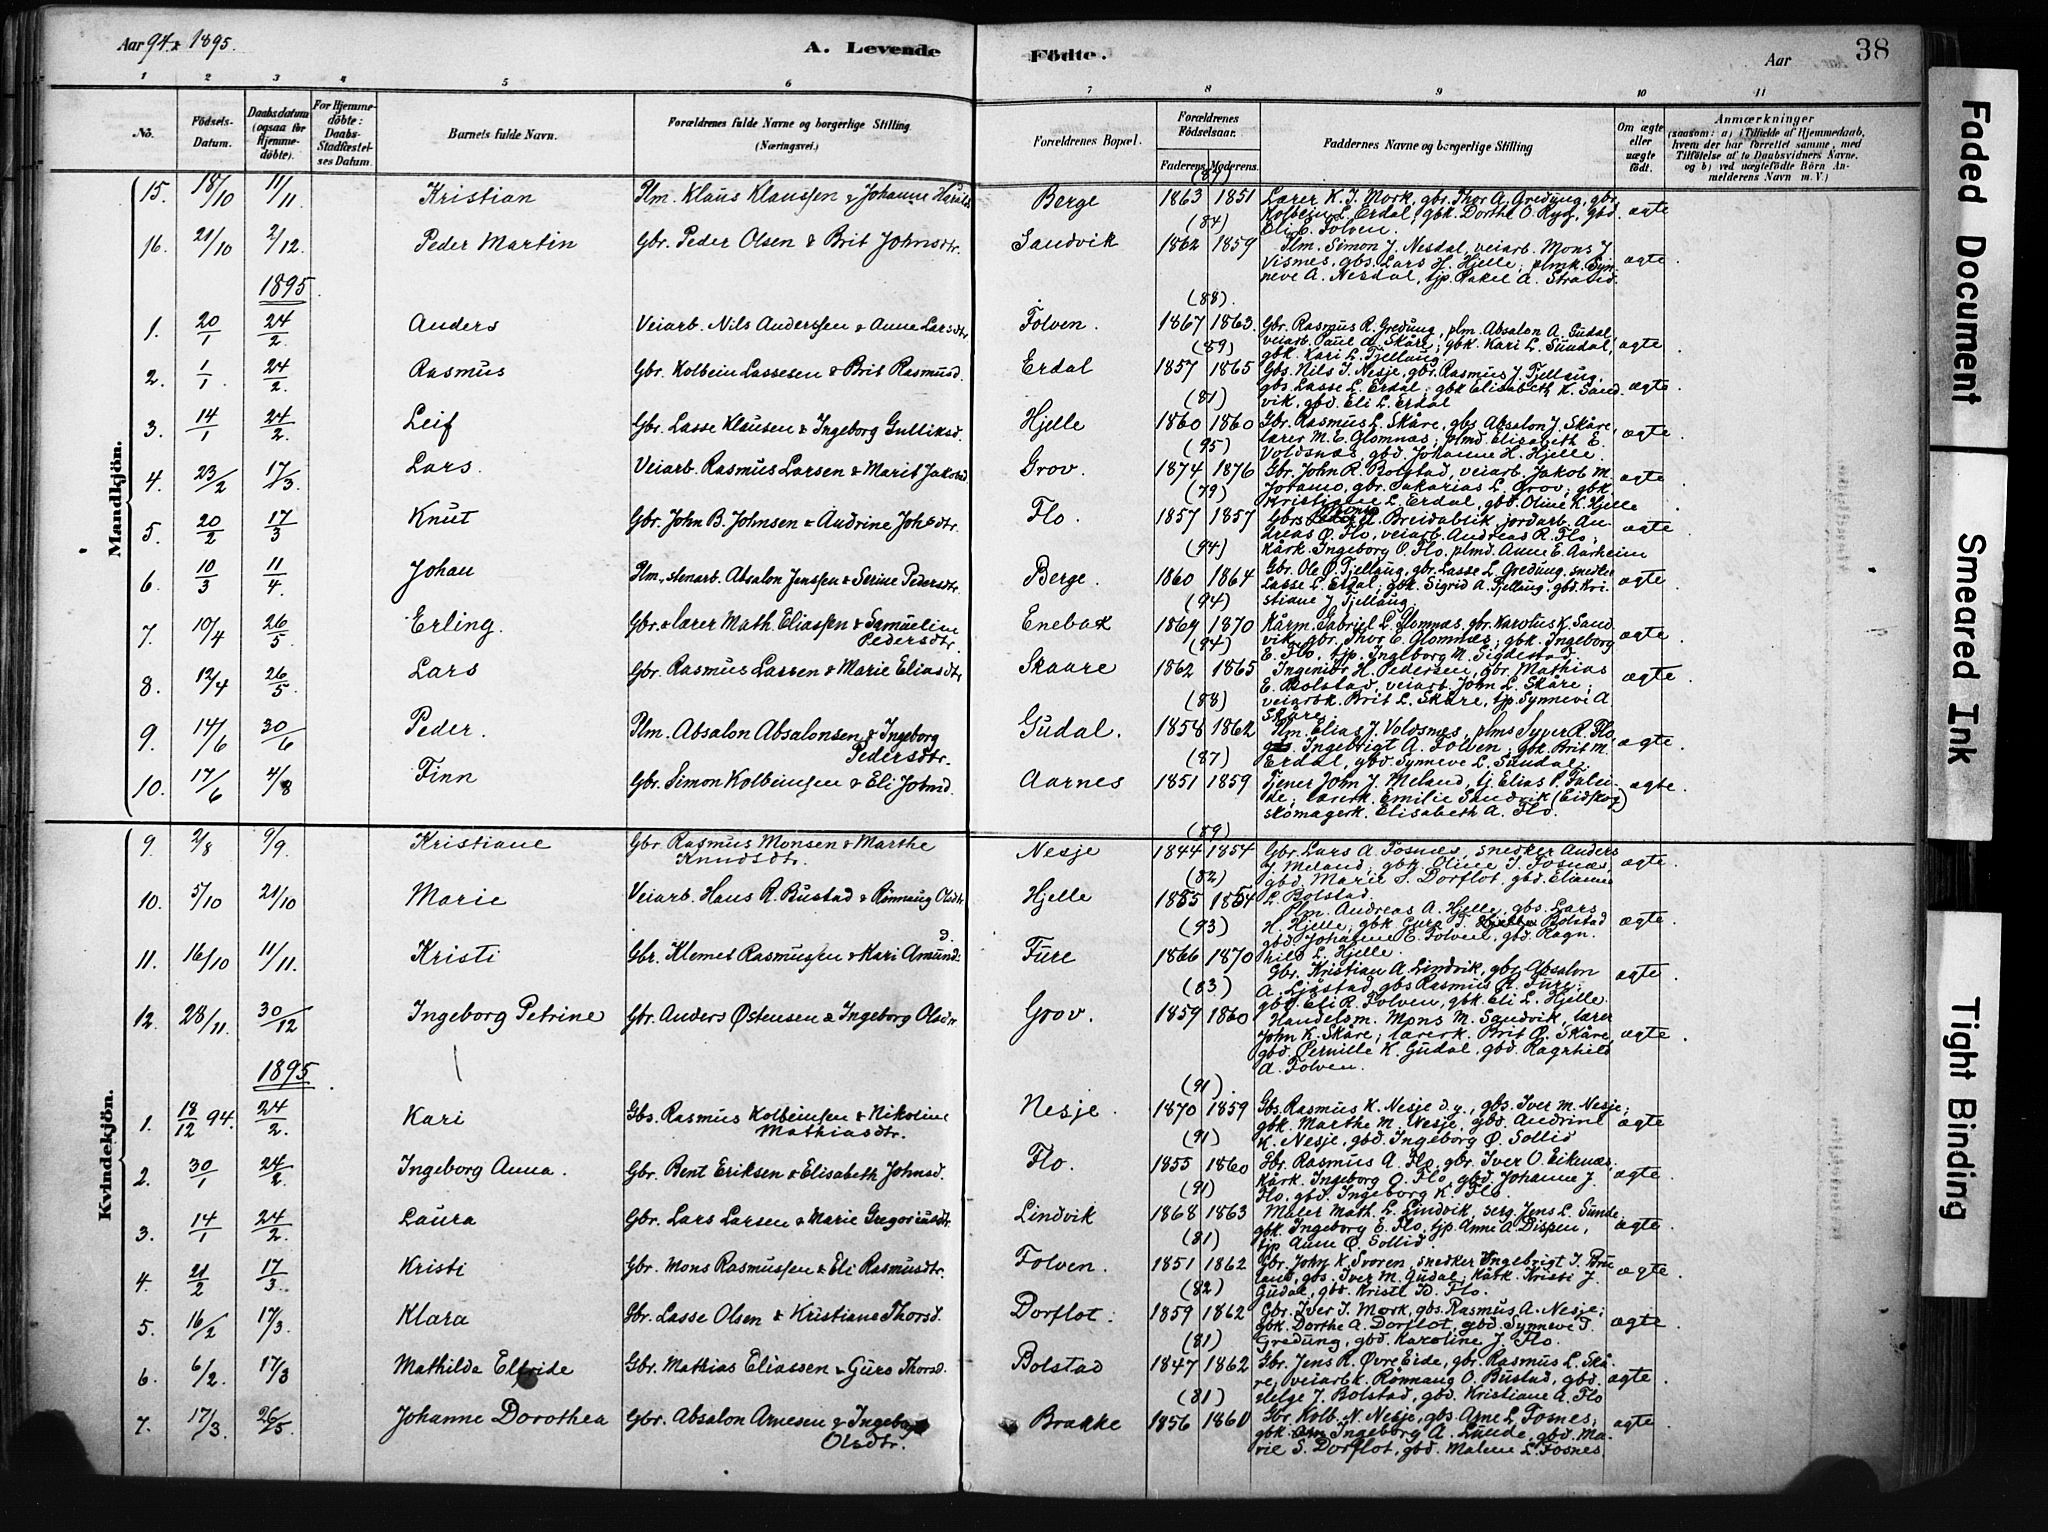 Aar 94 & 1895.
A. Levende Födte.
Aar
38
1 2 3 4 5 6 7 8 9 10 11
No.
Födsels-Datum.
Daabsdatum (ogsaa for Hjemme-döbte).
For Hjemme-döbte: Daabs-Stadfæstel-ses Datum.
Barnets fulde Navn.
Forældrenes fulde Navne og borgerlige Stilling (Næringsvei.)
Forældrenes Bopæl.
Forældrenes Födselsaar.
Faderens. Moderens.
Faddernes Navne og borgerlige Stilling
Om ægte eller uægte födt.
Anmærkninger
(saasom: a) i Tilfælde af Hjemmedaab, hvem der har forrettet samme, med Tilföielse af to Daabsvidners Navne. og b) ved uægtefödte Börn An-melderens Navn m. V.)
Mandkjön.
15. 18/10 11/11 Kristian Plm. Klaus Klaussen & Johanne Berge (87) 1863 1851 Lærer K. J. Mork, gbr. Thor A. Grødung, gbr. Kolbein L. Erdal, gbk. Dorthe O. Ryg, gbd. Eli E. Folven. ægte
16. 21/10 2/12 Peder Martin Gbr. Peder Olsen & Brit Johnsdtr. Sandvik (84) 1862 1859 Plm. Simon J. Nesdal, veiarb. Mons J. Vismes, gbs. Lars H. Hjelle; plmk. Synneve A. Nesdal, tjp. Rakel A. ægte.
1895
1. 20/1 24/2 Anders Veiarb. Nils Anderssen & Anne Larsdtr. Folven. (88) 1867 1863. Gbr. Rasmus R. Grødung, plm. Absalon A. Gudal, veiarb. Paul A. Skåre; gbk. Kari L. Sundal, gbk. Kari L. Tjellaug ægte
2. 1/1. 24/2 Rasmus Gbr. Kolbein Lassesen & Brit Rasmusd. Erdal (89) 1857 1865 Gbs. Nils J. Nesje, gbr. Rasmus J. Tjellaug, gbs. Lasse L. Erdal; gbk. Elisabeth K. Sandvik, gbd. Eli L. Erdal ægte
3. 14/1 24/2. Leif Gbr. Lasse Klausen & Ingeborg Gulliksd. Hjelle (81) 1860 1860 Gbr. Rasmus L. Skåre, gbs. Absalon J. Skåre, lærer M. E. Glomnæs; plmd. Elisabeth E. Voldsnæs, gbd. Johanne H. Hjelle. ægte.
4. 23/2 17/3. Lars. Veiarb. Rasmus Larsen & Marit Jakobsd. Grov. (95) 1874 1876 Gbr. John R. Bolstad, veiarb. Jakob M. gbr. Sakarias L. Grov; gbk. Kristiane L. Erdal, gbd. Oline K. Hjelle ægte
5. 20/2 17/3 Knut Gbr. John B. Johnsen & Andrine Flo. (79) 1857 1857 Breidablik, jordarb. Andreas Ø. Flo, veiarb. Andreas R. Flo; kårk. Ingeborg O. Flo, plmd. Anne E. Aarheim ægte
6. 10/3 11/4. Johan Plm. stenarb. Absalon Jenssen & Serine Pedersdtr. Berge. (94) 1860 1864 Gbr. Ole Ø. Tjellaug, gbr. Lasse L. Grødung, snedker Lasse L. Erdal; gbk. Sigrid A. Tjellaug, gbd. Kristiane J. Tjellaug. ægte
7. 10/4 26/5 Erling. Gbr. & lærer Math. Eliassen & Samueline Pedersdtr. Enebak (94) 1869 1870 Kårm. Gabriel L. Glomnæs, gbr. Karolus K. Sandvik, gbr. Thor E. Glomnæs; gbk. Ingeborg E. Flo, tjp. Ingeborg M. Sigdestad. ægte
8. 12/4 26/5 Lars Gbr. Rasmus Lassen & Marie Eliasdtr. Skaare (94) 1862 1865 Ingeniør H. Pedersen, gbr. Mathias E. Bolstad, veiarb. John L. Skåre; veiarbk. Brit L. Skåre, tjp. Synneve A. Skåre. ægte.
9. 14/6 30/6 Peder. Plm. Absalon Absalonsen & Ingeborg Pedersdtr. Gudal. (88) 1858 1862 Plm. Elias J. Voldsnes, plms Syver R. Flo, gbs. Ingebrigt A. Folven; gbk. Brit M. Erdal, gbd. Synneve L. Sundal. ægte.
10. 17/6 4/8 Finn Gbr. Simon Kolbeinssen & Eli Johnsd. Aarnes (87) 1851 1859 Tjener John J. Meland, tj. Elias P. lærerk. Emilie Sandvik (Eidskog) skomagerk. Elisabeth A. Flo. ægte.
Kvindekjön.
9. 2/8 9/9. Kristiane Gbr. Rasmus Monsen & Marthe Knudsdtr. Nesje (89) 1844 1854 Gbr. Lars A. Fosnæs, snedker Anders J. Meland; gbk. Oline J. Fosnæs, gbd. Marie S. Dorflot, gbd. Elianne L. Bolstad. ægte.
10. 5/10 21/10 Marie Veiarb. Hans R. Bustad & Rønnaug Olsdtr. Hjelle (82) 1855 1854 Plm. Andreas A. Hjelle, gbs. Lars H. Hjelle; gbk. Guro T. Bolstad, gbd. Johanne E. Folven, gbd. Ragnhild L. Hjelle. ægte.
11. 16/10 11/11. Kristi Gbr. Klemet Rasmussen & Kari Amundsd. Fure (93) 1866 1870 Gbr. Kristian A. Lindvik, gbr. Absalon A. Ljøstad, gbs Rasmus R. Fure; gbd. Eli R. Folven, gbk. Eli L. Hjelle ægte.
12. 28/11. 30/12 Ingeborg Petrine Gbr. Anders Østensen & Ingeborg Olsdtr Grov. (83) 1859 1860 Handelsm. Mons M. Sandvik, lærer John K. Skåre; lærerk. Brit O. Skåre, gbd. Pernille K. Gudal, gbd. Ragnhild A. Folven. ægte.
1895.
1. 18/12 94. 24/2. Kari Gbs. Rasmus Kolbeinssen & Nikoline Mathiasdtr. Nesje. (91) 1870 1859 Gbs. Rasmus K. Nesje d.y., gbs. Iver M. Nesje; gbk. Marthe M. Nesje, gbd. Andrine K. Nesje, gbd. Ingeborg Ø. Sollid ægte
2. 30/1 24/2. Ingeborg Anna. Gbr. Bent Eriksen & Elisabeth Johnsd. Flo. (91) 1855 1860 Gbr. Rasmus A. Flo, gbr. Iver O. Eikenæs; kårk. Ingeborg O. Flo, gbd. Johanne J. Flo, gbd. Ingeborg K. Flo. ægte.
3. 14/1 24/2. Laura Gbr. Lars Larsen & Marie Gregoriusdtr. Lindvik (91) 1868 1863 Maler Math. L. Lindvik, serg. Jens L. Sunde, gbk. Ingeborg E. Flo, tjp. Anne A. Dispen, tjp. Anne Ø. Sollid. ægte.
4. 21/2 17/3. Kristi Gbr. Mons Rasmussen & Eli Rasmusdtr. Folven. (81) 1851 1862 Gbr. John K. Svoren, snedker Ingebrigt I. Bruland, gbs. Iver M. Gudal; kårk. Kristi J. Gudal, gbd. Kristi Flo. ægte.
5. 16/2 17/3. Klara Gbr. Lasse Olsen & Kristiane Thorsd. Dorflot. (82) 1859 1862 Gbr. Iver J. Mork, gbs. Rasmus A. Nesje; gbk. Dorthe A. Dorflot, gbd. Synneve T. Grødung, gbd. Karoline J. Flo. ægte.
6. 6/2. 17/3 Mathilda Elfride Gbr. Mathias Eliassen & Guro Thorsd. Bolstad (81) 1847 1862 Gbr. Jens R. Øvre Eide, gbr. Rasmus L. Skåre; veiarbk. Rønnaug O. Bustad, gbd. Helge J. Bolstad, gbd. Kristiane A. Flo ægte.
7. 17/3. 26/5 Johanne Dorothea Gbr. Absalon Arnesen & Ingeborg Olsdtr. Brække (81) 1856 1860 Gbr. Kolb. N. Nesje, gbs. Arne L. Fosnes; gbk. Ingeborg A. Lunde, gbd. Marie S. Dorflot, gbd. Malene L. Fosnes. ægte.
Faded Document
Smeared Ink
Tight Binding